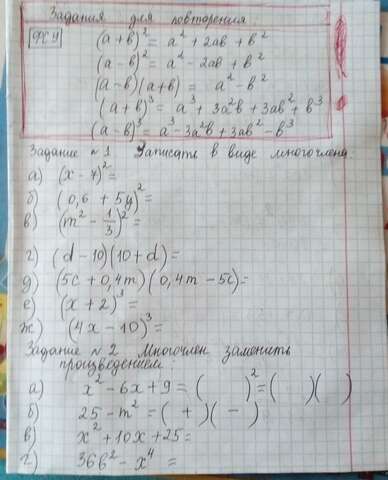 Задания для повторения:
ФСУ
(а + в)² = а² + 2ав + в²
(а - в)² = а² - 2ав + в²
(а - в)(а + в) = а² - в²
(а + в)³ = а³ + 3а²в + 3ав² + в³
(а - в)³ = а³ - 3а²в + 3ав² - в³
Задание №1 Записать в виде многочлена:
а) (x - 7)² =
б) (0,6 + 5y)² =
в) (m² - 1/3)² =
г) (d - 10)(10 + d) =
д) (5c + 0,4m)(0,4m - 5c) =
е) (x + 2)³ =
ж) (4x - 10)³ =
Задание №2 Многочлен заменить
произведением:
а) x² - 6x + 9 = (   )² = (   )(   )
б) 25 - m² = (  +  )(  -  )
в) x² + 10x + 25 =
г) 36в² - x⁴ =